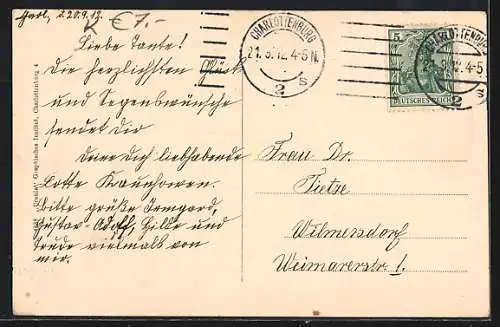 Charl., d. 20.9.12.
K €7,-
Liebe Tante!
Die herzlichsten Glück
und Segenswünsche
sendet dir
Deine dich liebhabende
Lotte
Bitte grüße Irmgard,
Gustav-Adolf, Hilde und
Trude vielmals von
mir.
Graphisches Institut, Charlottenburg 4
CHARLOTTENBURG
21.9.12.4-5N.
2 s
5 5
DEUTSCHES REICH
CHARLOTTENBURG
21.9.12.4-5N.
2 s
Frau Dr.
Tietze
Wilmersdorf
Weimarerstr. 1.